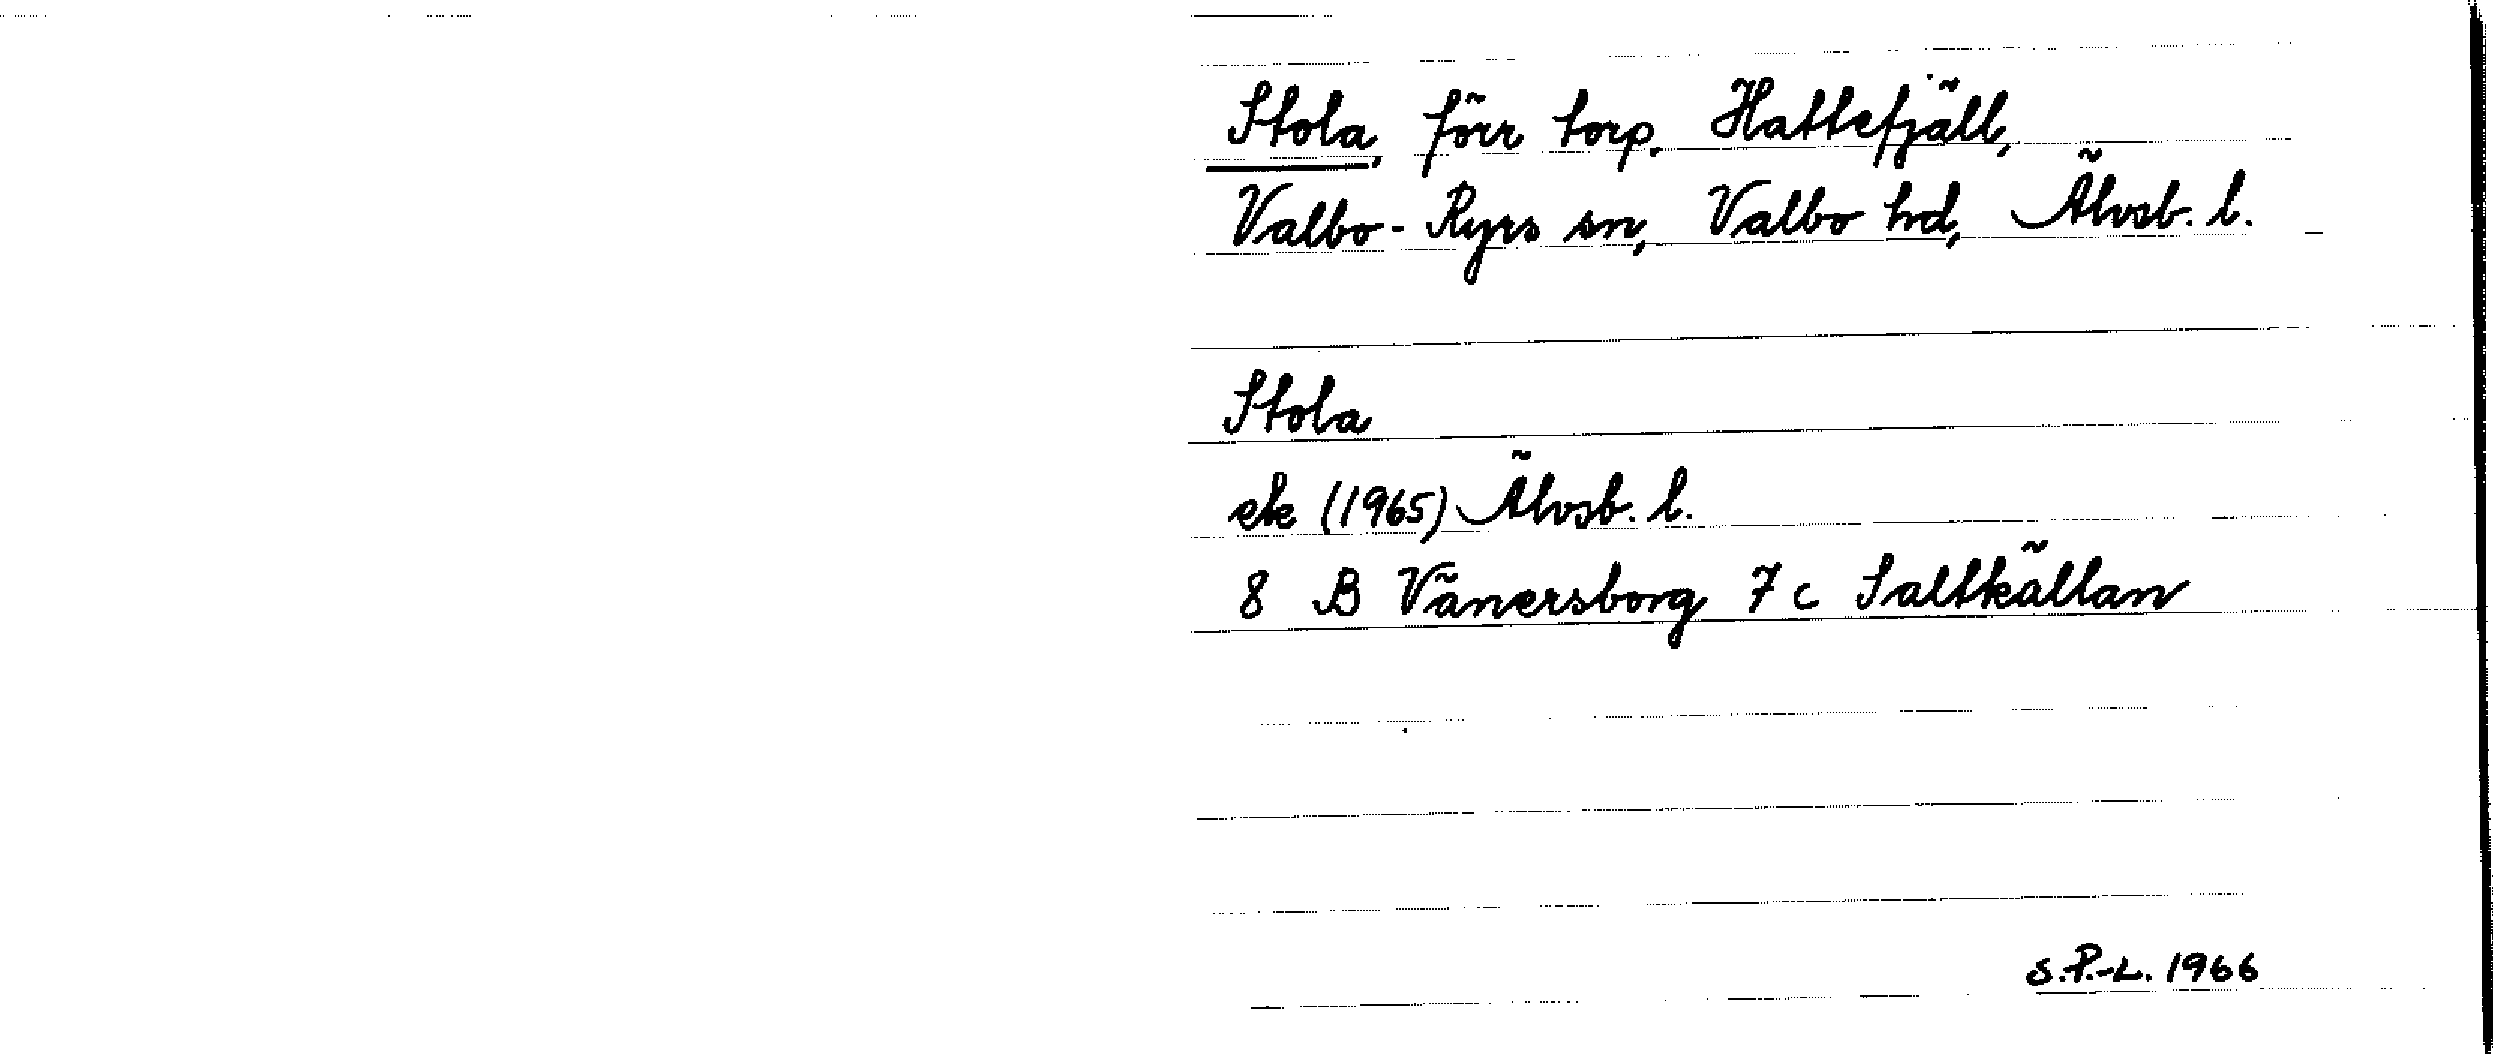 Stola, förr torp, Hattefjäll,
Valbo-Ryrs sn, Valbo hd, Älvsb. l.
Stola
ek (1965) Älvsb. l.
8 B Vänersborg 7 c Saltkällan
S.P.-L. 1966